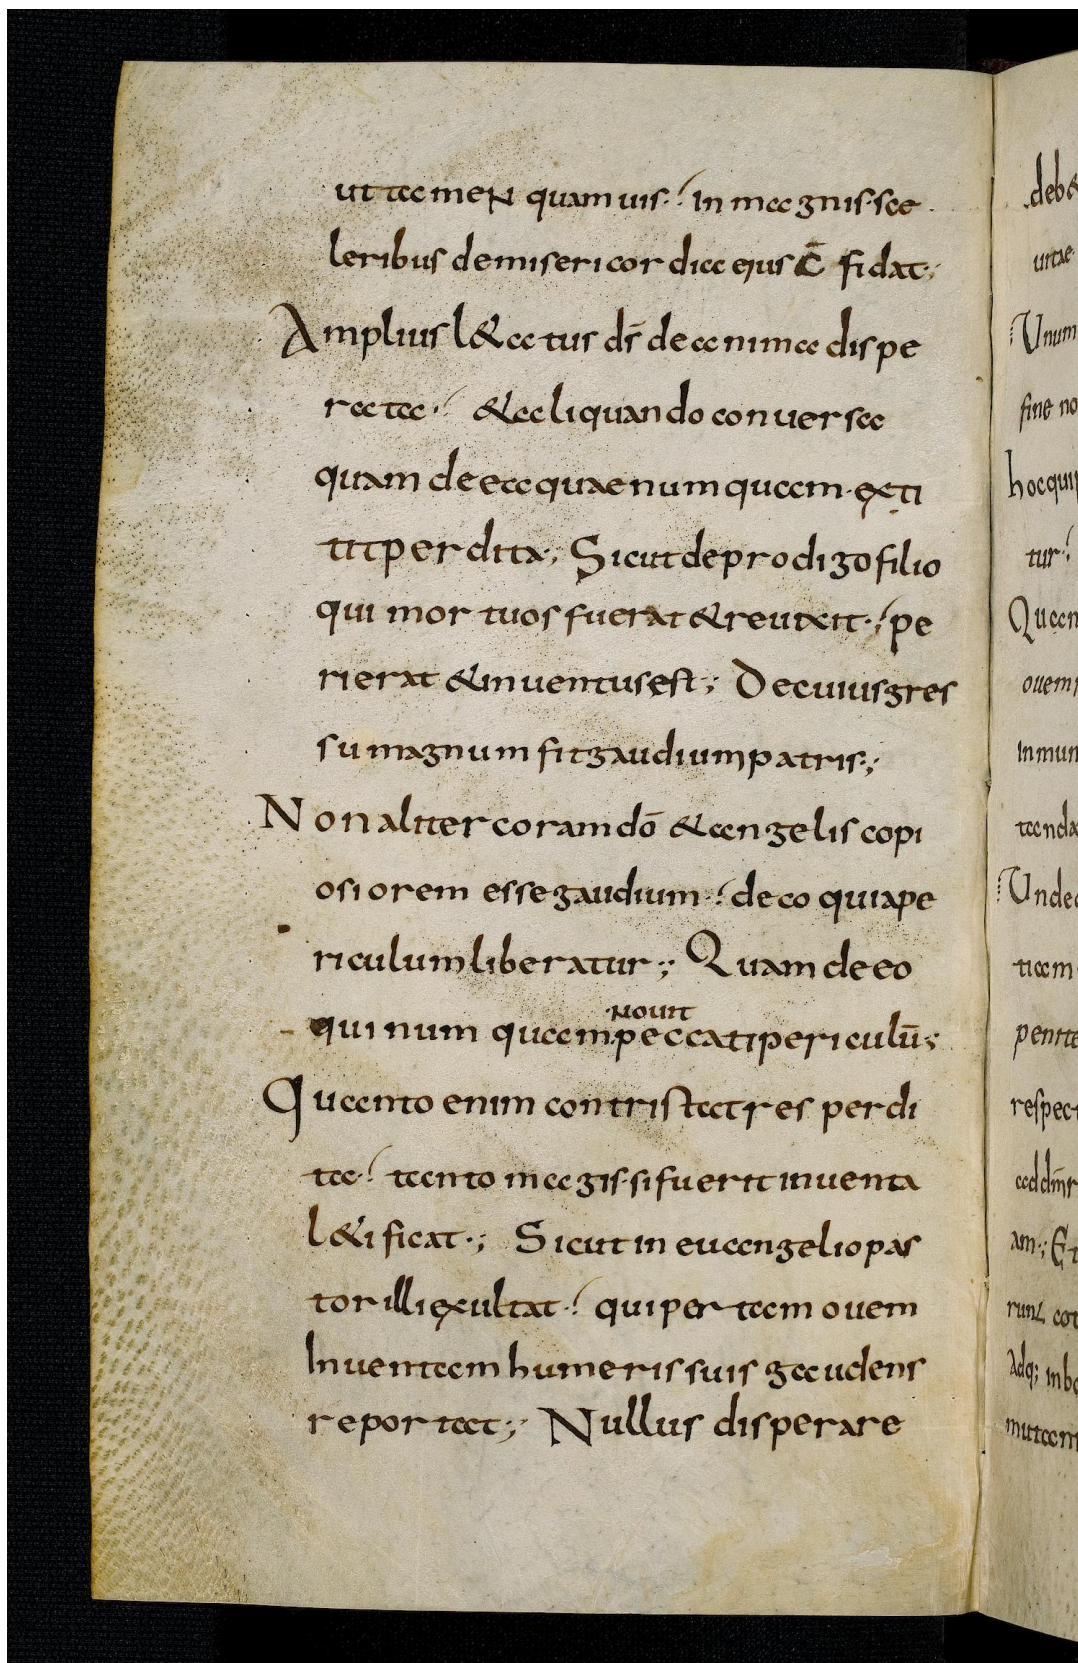 ut tamen quamuis· in magnis sce
leribus demisericordia eius c̄ fidat·;
Amplius l&atus dr̄ de animca dispe
rata· &aliquando conuersa
quam deea quaenumquam exti
tit perdita; Sicut deprodigo filio
qui mortuos fuerat &reuixit· pe
rierat &inuentus est; Decuius gres
su magnum fit gaudium patris·;
Non aliter coram dō &angelis copi
osiorem esse gaudium· deeo quiape
riculum liberatur·; Quam deeo
nouit
qui numquam peccati periculū;
Quanto enim contristat res perdi
ta· tanto magis si fuerit inuenta
l&ificat·; Sicut in euangelio pas
tor ille exultat· qui perditam ouem
Inuentam humeris suis gaudens
reportat; Nullus disperare
deb&
uitae
Unum
fine no
hoc qui
tur
Quam
ouem
inmun
tanda
Unde
tiam
penite
respec
ad dn̄r
am·; Et
runt
Adq; inb
mutam